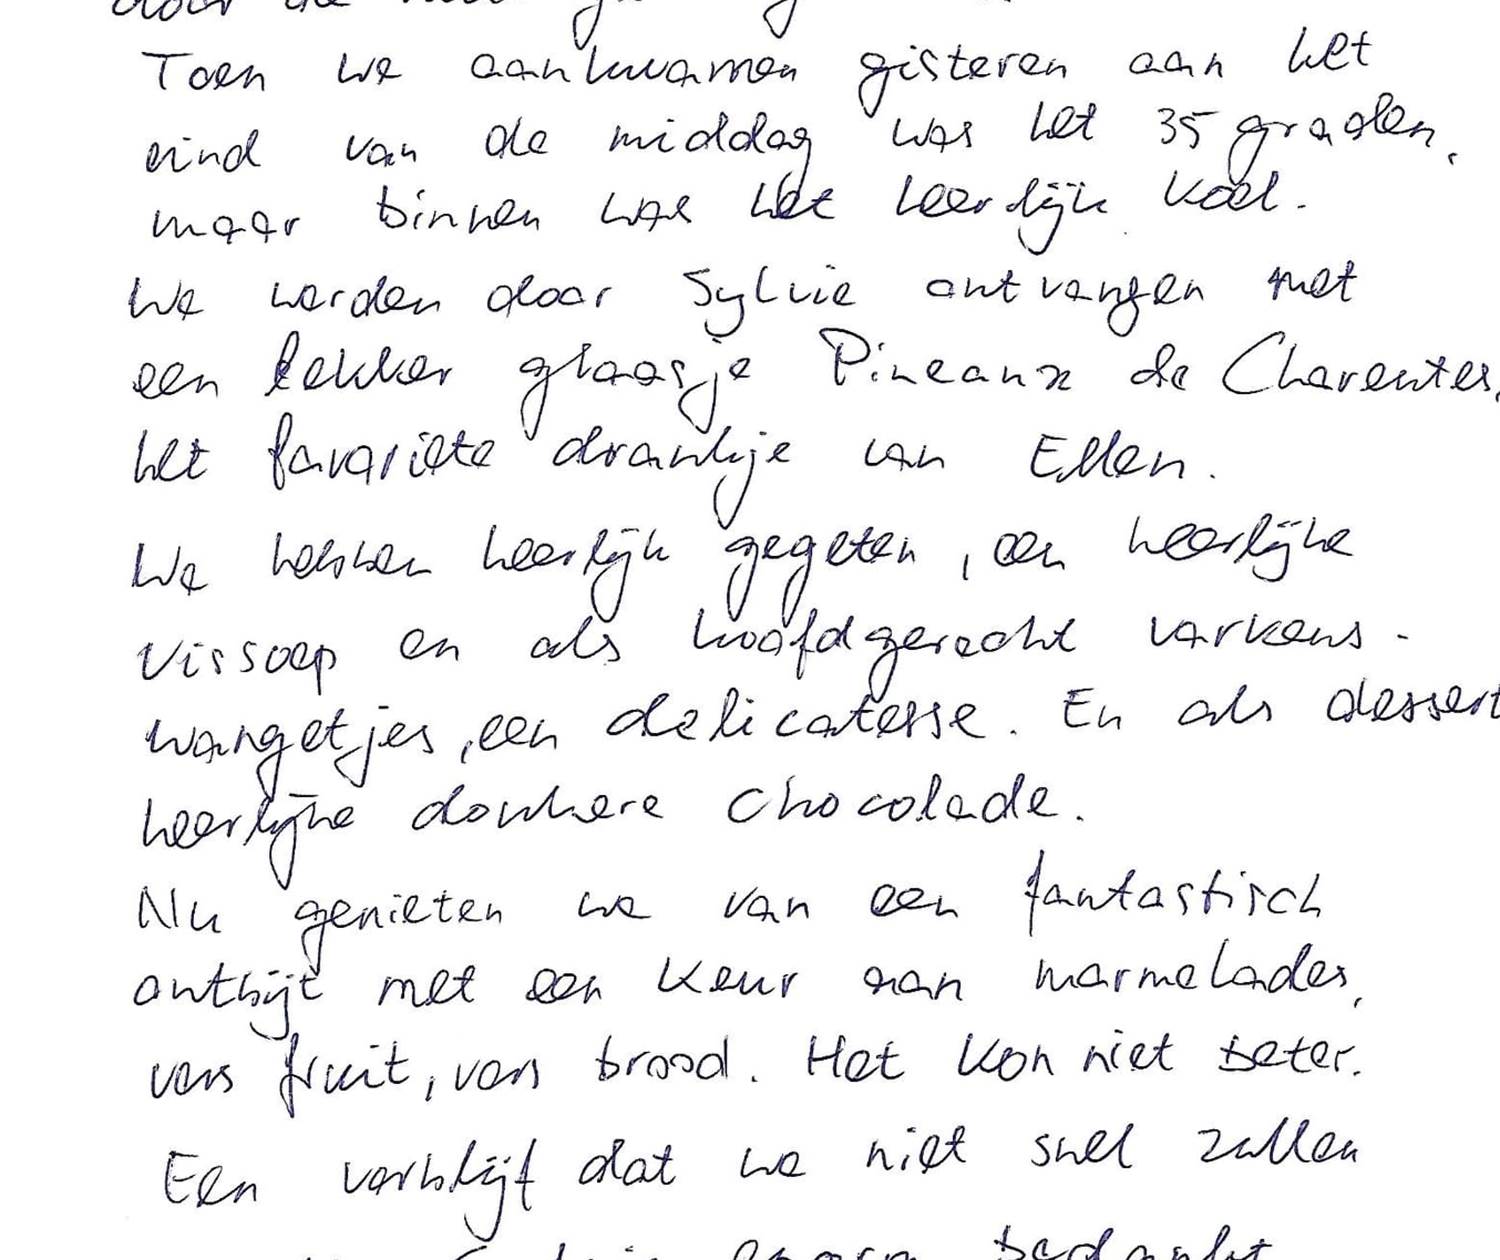 door de
Toen we aankwamen gisteren aan het
eind van de middag was het 35 graden,
maar binnen was het heerlijk koel.
We werden door Sylvie ontvangen met
een lekker glaasje Pineaux de Charentes,
het favoriete drankje van Ellen.
We hebben heerlijk gegeten, een heerlijke
vissoep en als hoofdgerecht varkens-
wangetjes, een delicatesse. En als dessert
heerlijke donkere chocolade.
Nu genieten we van een fantastisch
ontbijt met een keur aan marmelades,
vers fruit, vers brood. Het kon niet beter.
Een verblijf dat we niet snel zullen
bedankt